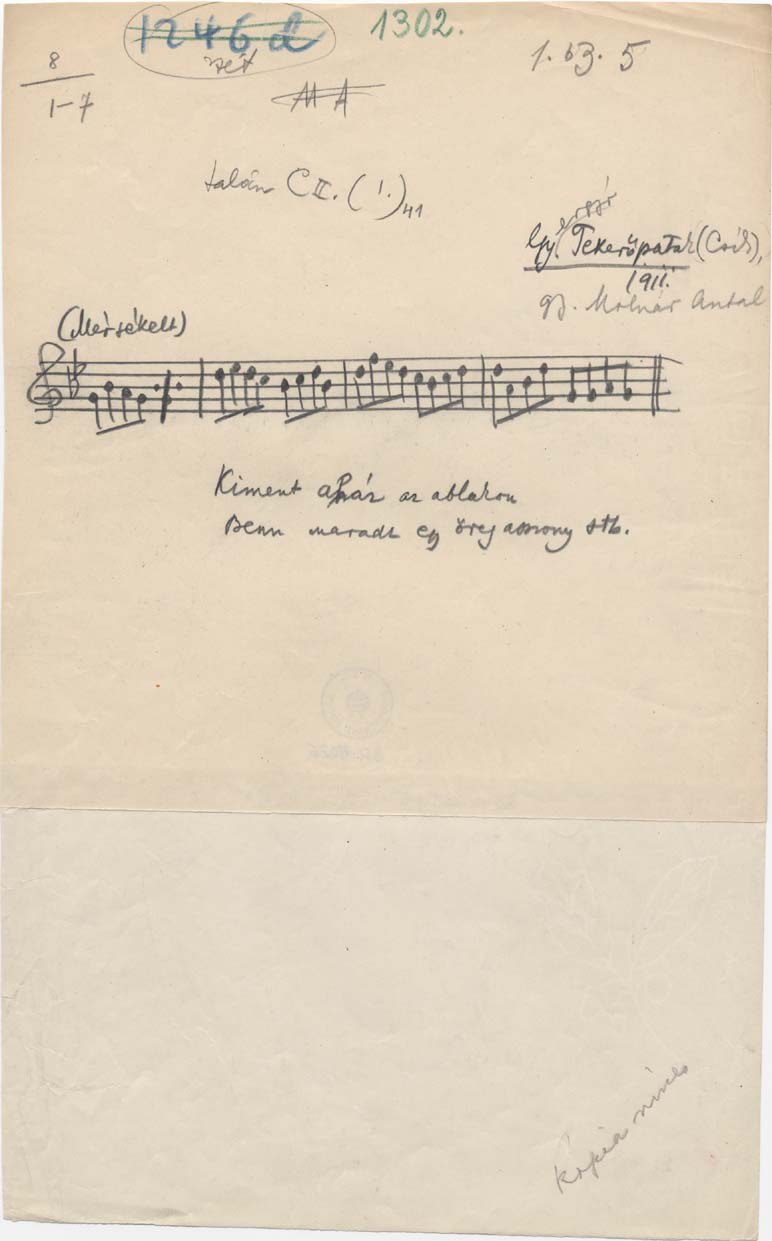 1246 d
1302.
1. b3. 5
8
1-7
MA
talán C II. (1.) 41
Gy. Tekerőpatak (Csík),
1911.
gy. Molnár Antal
(Mérsékelt)
Kiment a ház az ablakon
Benn maradt egy öregasszony stb.
kópia nincs